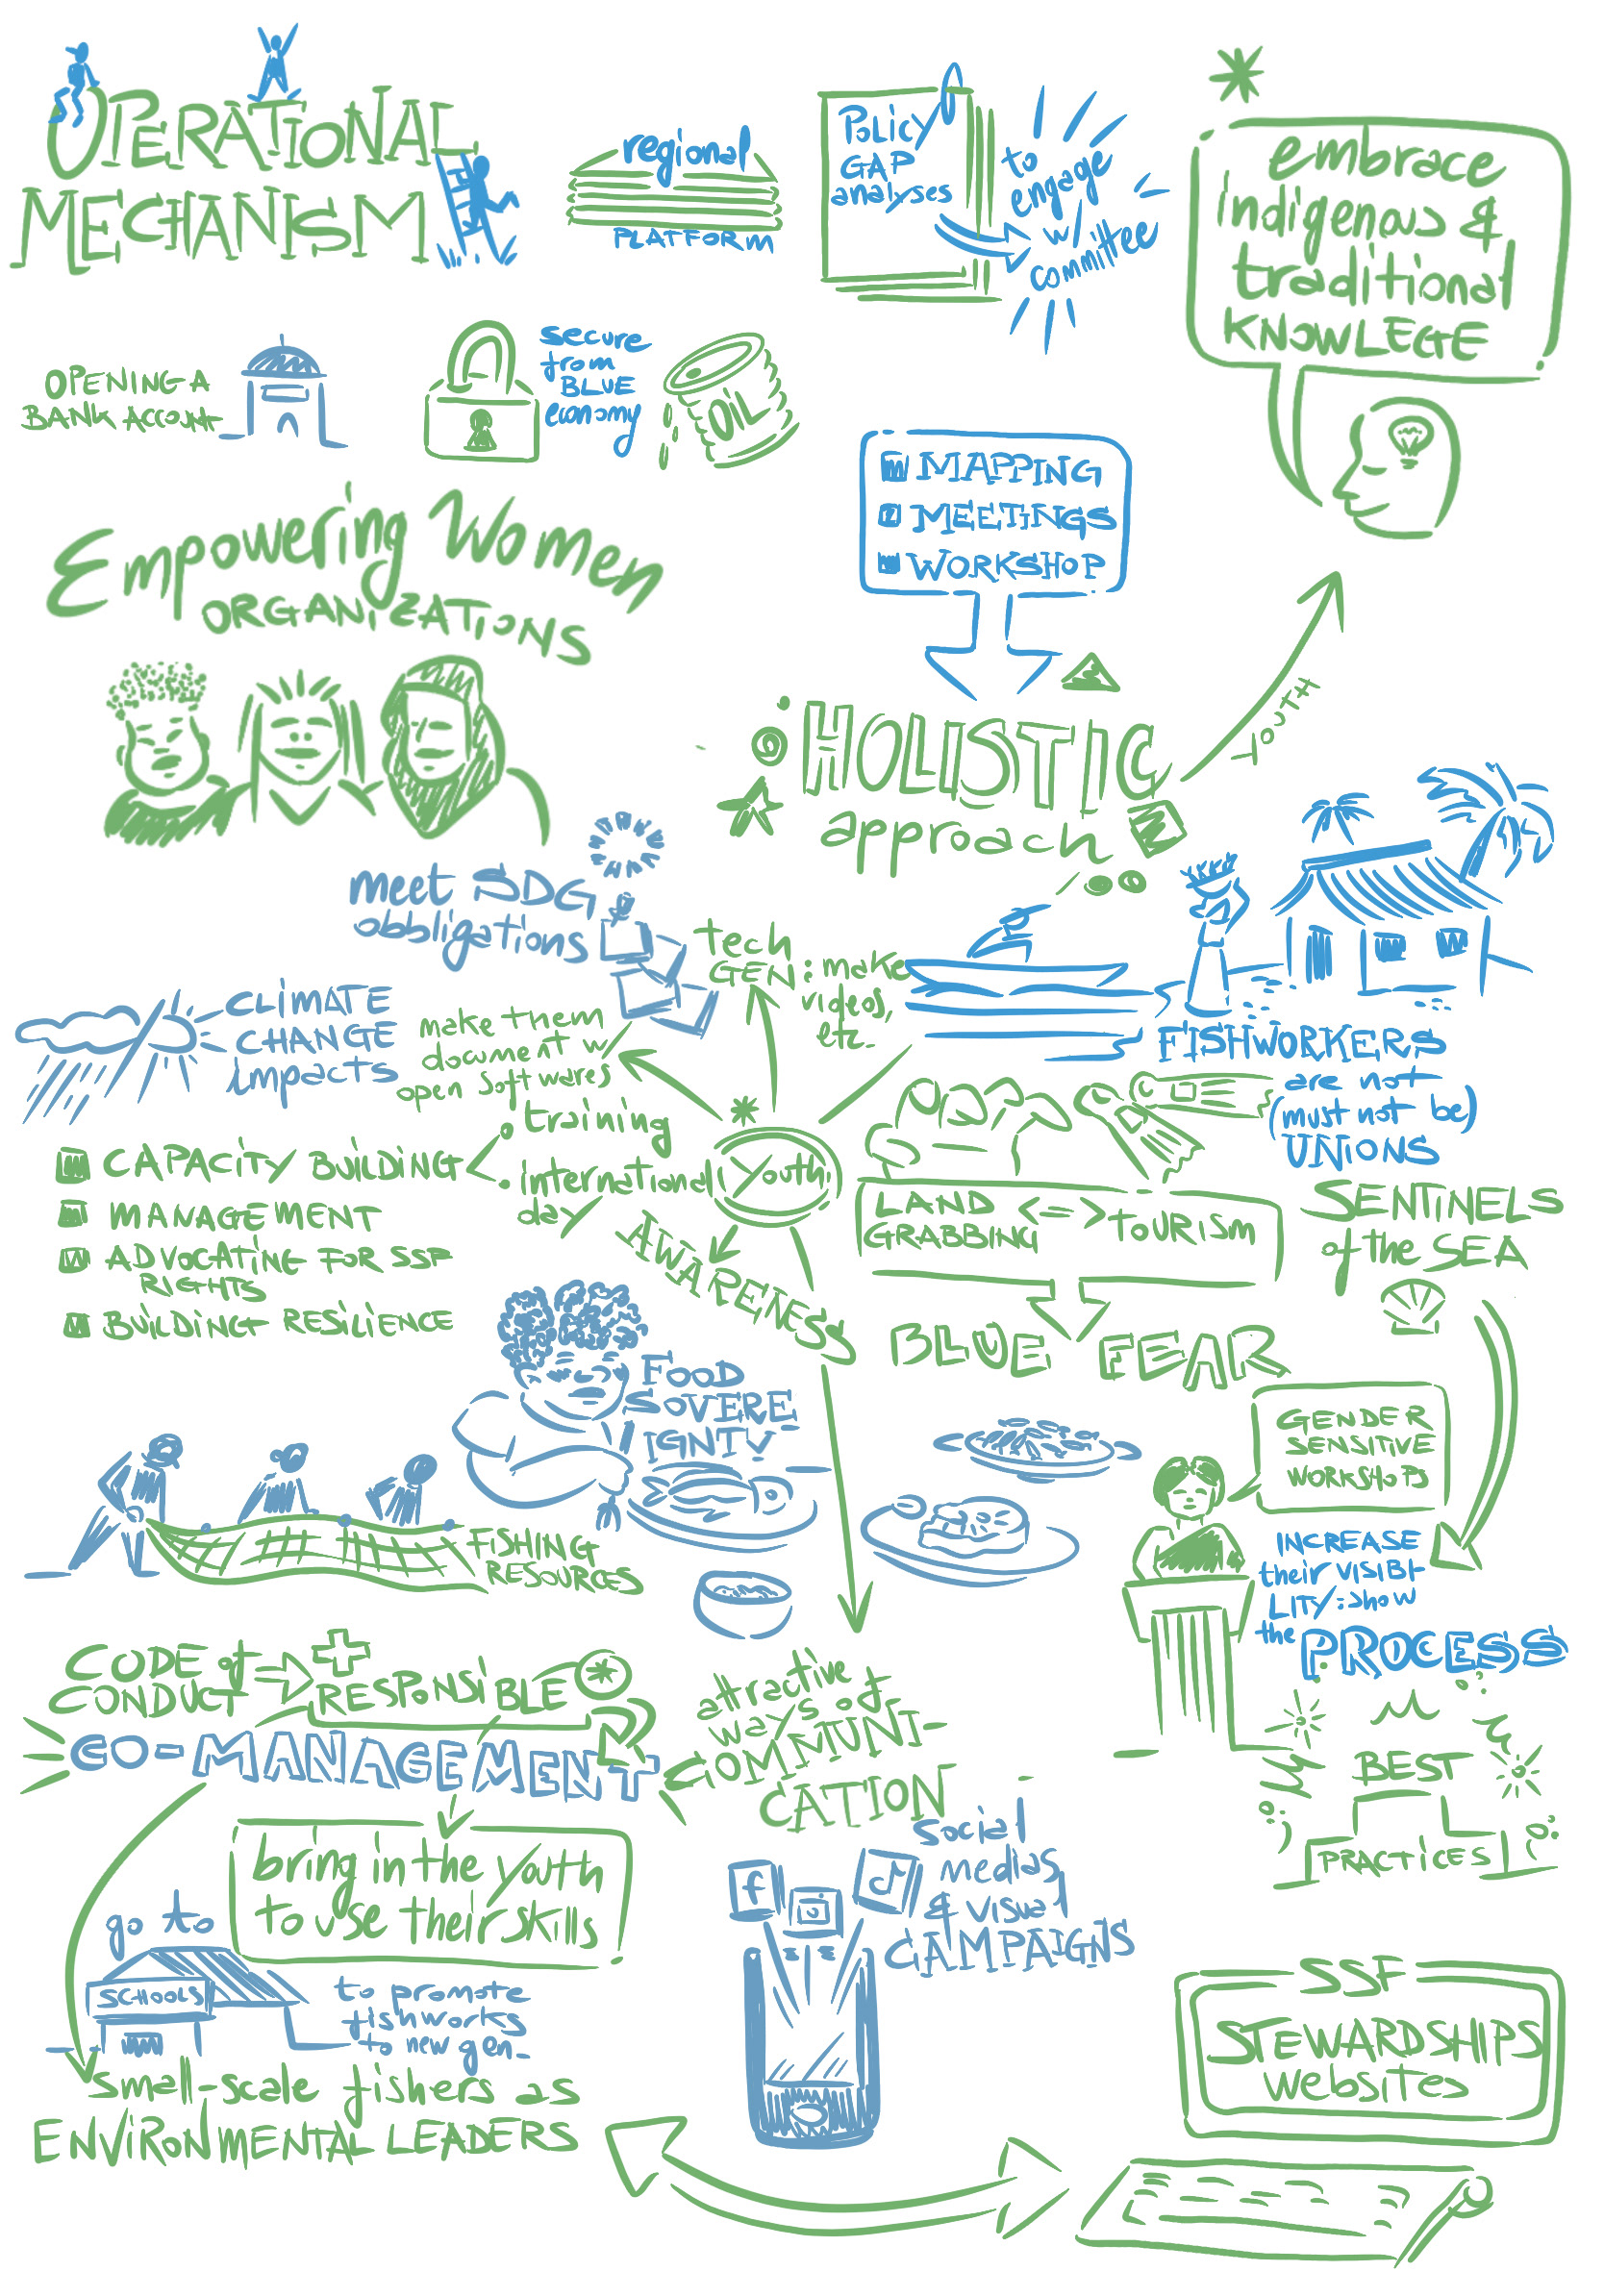 OPERATIONAL
MECHANISM
regional
PLATFORM
POLICY
GAP
analyses
to
engage
w/
committee
embrace
indigenous &
traditional
KNOWLEGE
OPENING A
BANK ACCOUNT
secure
from
BLUE
economy
OIL
MAPPING
MEETINGS
WORKSHOP
Empowering Women
ORGANIZATIONS
HOLISTIC
approach
YOUTH
meet SDG
obbligations
CLIMATE
CHANGE
impacts
make them
document w
open softwares
tech
GEN: make
videos,
etc.
FISHWORKERS
are not
(must not be)
UNIONS
CAPACITY BUILDING
MANAGEMENT
ADVOCATING FOR SSF
RIGHTS
BUILDING RESILIENCE
training
international
day
Youth
AWARENESS
LAND
GRABBING <=> TOURISM
BLUE FEAR
SENTINELS
of the SEA
FOOD
SOVERE
IGNTY
FISHING
RESOURCES
GENDER
SENSITIVE
WORKSHOPS
INCREASE
their VISIBI
LITY: show
the PROCESS
BEST
PRACTICES
CODE of
CONDUCT
RESPONSIBLE
CO-MANAGEMENT
attractive
ways of
COMMUNI-
CATION
bring in the youth
to use their skills
go to
SCHOOLS
to promote
fishworks
to new gen.
Social
medias
& visual
CAMPAIGNS
f
small-scale fishers as
ENVIRONMENTAL LEADERS
SSF
STEWARDSHIPS
websites